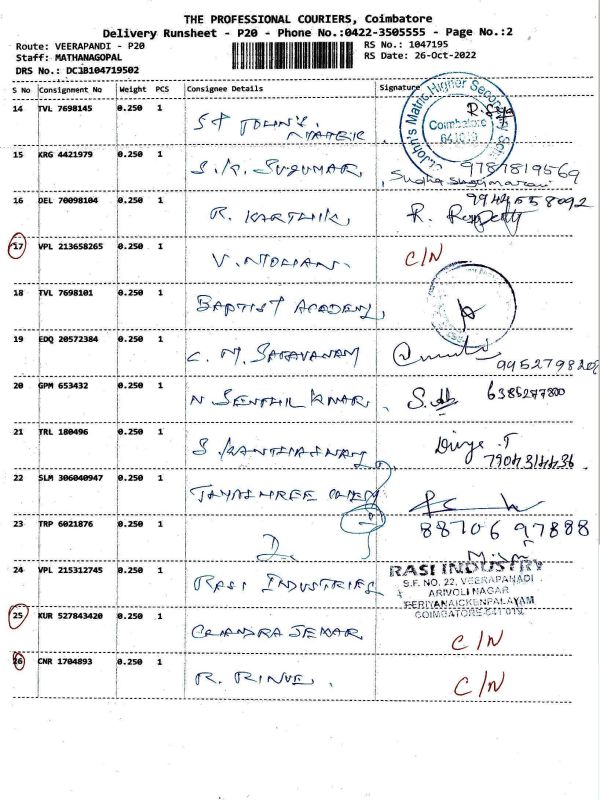 THE PROFESSIONAL COURIERS, Coimbatore
Delivery Runsheet - P20 - Phone No.:0422-3505555 - Page No.:2
Route: VEERAPANDI - P20 RS No.: 1047195
Staff: MATHANAGOPAL RS Date: 26-Oct-2022
DRS No.: DCJB104719502
S No Consignment No Weight PCS Consignee Details Signature
14 TVL 7698145 0.250 1
St. John's Matric Higher Secondary School
Coimbatore
15 KRG 4421979 0.250 1 S.K. SUGUMAR 9787819569
Sudha Sugumaran
16 DEL 70098104 0.250 1 R. KARTHIK, 9944558092
17 VPL 213658265 0.250 1 C/N
18 TVL 7698101 0.250 1 BAPTIST ACADEMY
19 EDQ 20572384 0.250 1 C. M. SARAVANAN
20 GPM 653432 0.250 1 N SENTHIL KUMAR 6385277800
21 TRL 180496 0.250 1 Divya .T
22 SLM 306040947 0.250 1 JAYASHREE
23 TRP 6021876 0.250 1 88706 97888
24 VPL 215312745 0.250 1 RASI INDUSTRIES RASI INDUSTRY
S.F. NO. 22, VEERAPANADI
ARIVOLI NAGAR
PERIYANAICKENPALAYAM
COIMBATORE-641 019.
25 KUR 527843420 0.250 1 CHANDRA SEKAR C/N
26 CNR 1704893 0.250 1 C/N